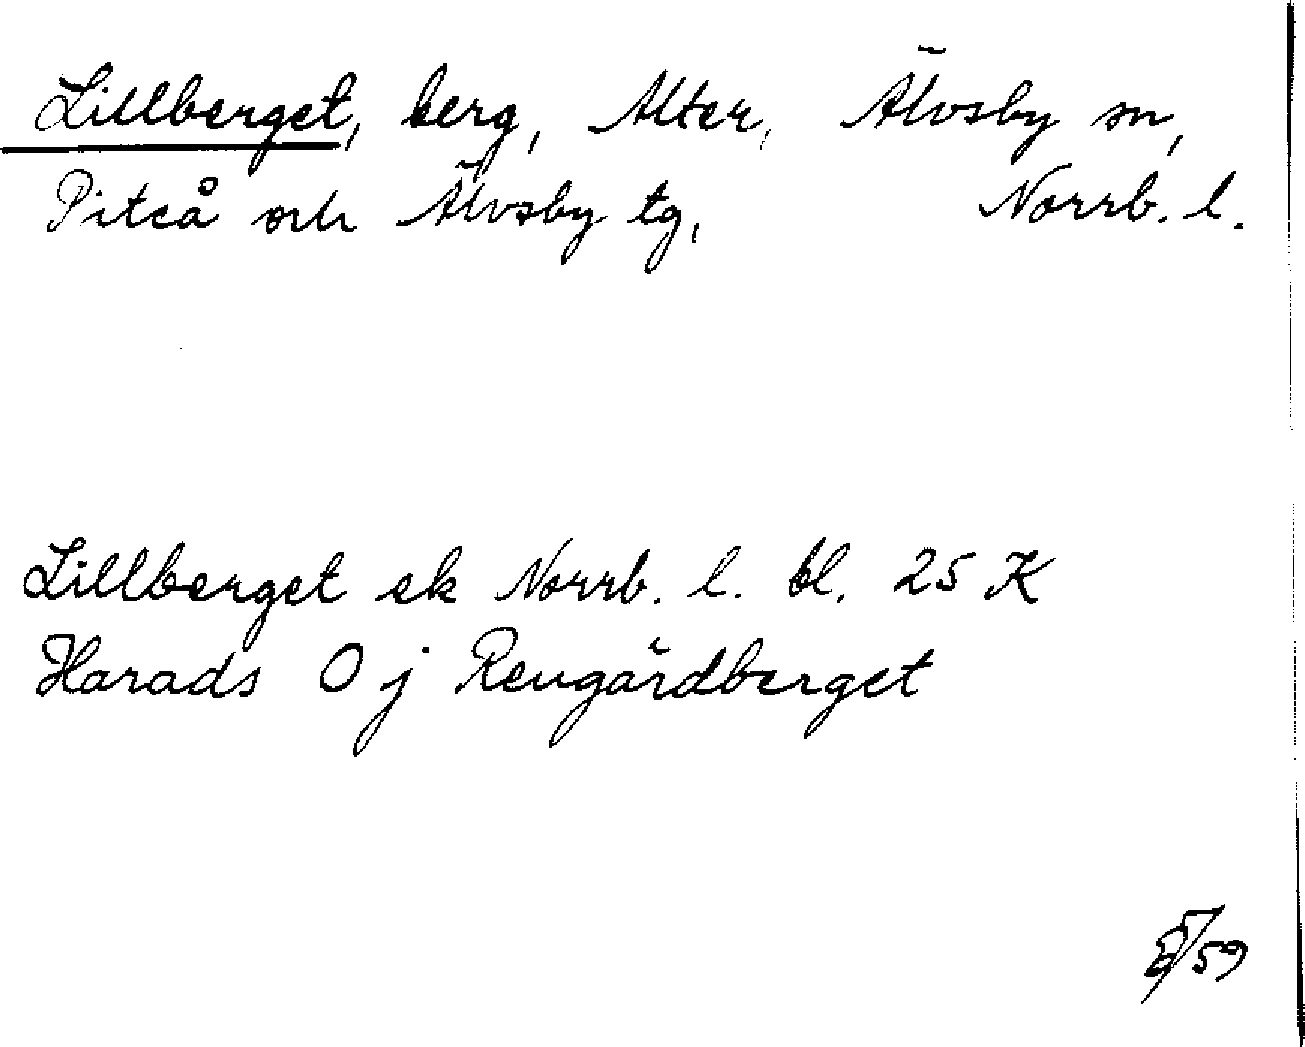 Lillberget, berg, Alter, Älvsby sn,
Piteå och Älvsby tg, Norrb. l.
Lillberget ek Norrb. l. bl. 25 K
Harads O j Rengärdberget
/59